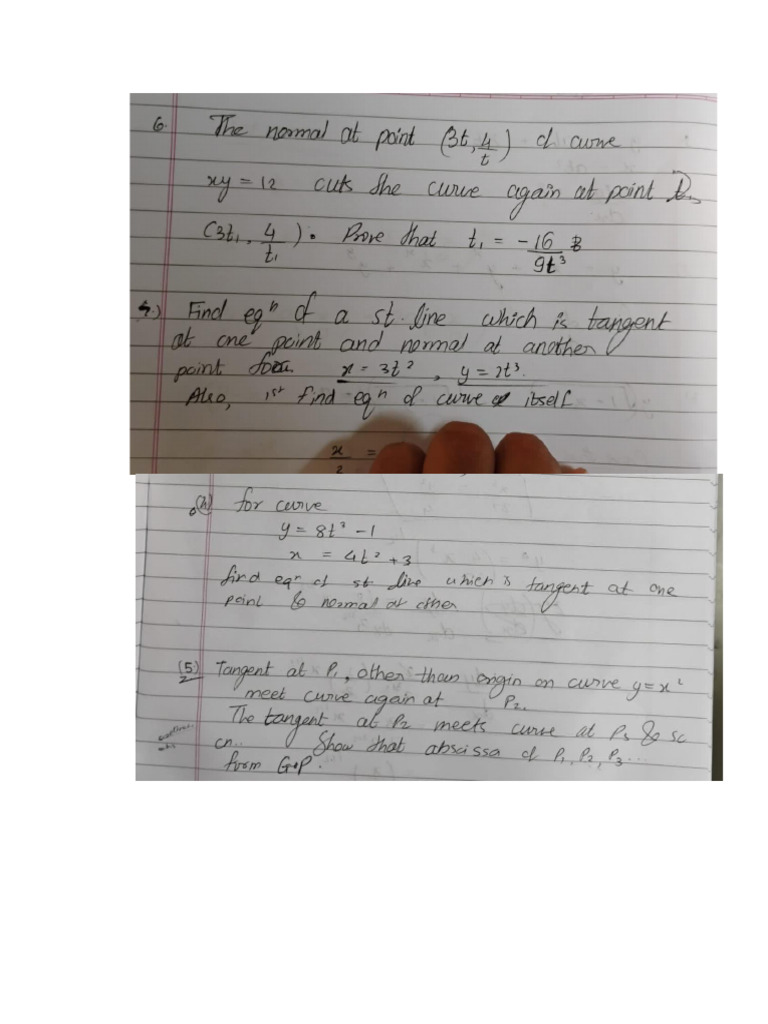 6. The normal at point (3t, 4/t) of curve
xy = 12 cuts the curve again at point
(3t₁, 4/t₁). Prove that t₁ = -16/9t³
7.) Find eqⁿ of a st. line which is tangent
at one point and normal at another
point for x = 3t², y = 2t³.
Also, 1st find eqⁿ of curve itself
x/2 =
(h) for curve
y = 8t³ - 1
x = 4t² + 3
find eqⁿ of st line which is tangent at one
point & normal at other
(5) Tangent at P₁, other than origin on curve y = x²
meet curve again at P₂.
The tangent at P₂ meets curve at P₃ & so
on.. Show that abscissa of P₁, P₂, P₃...
form G.P.